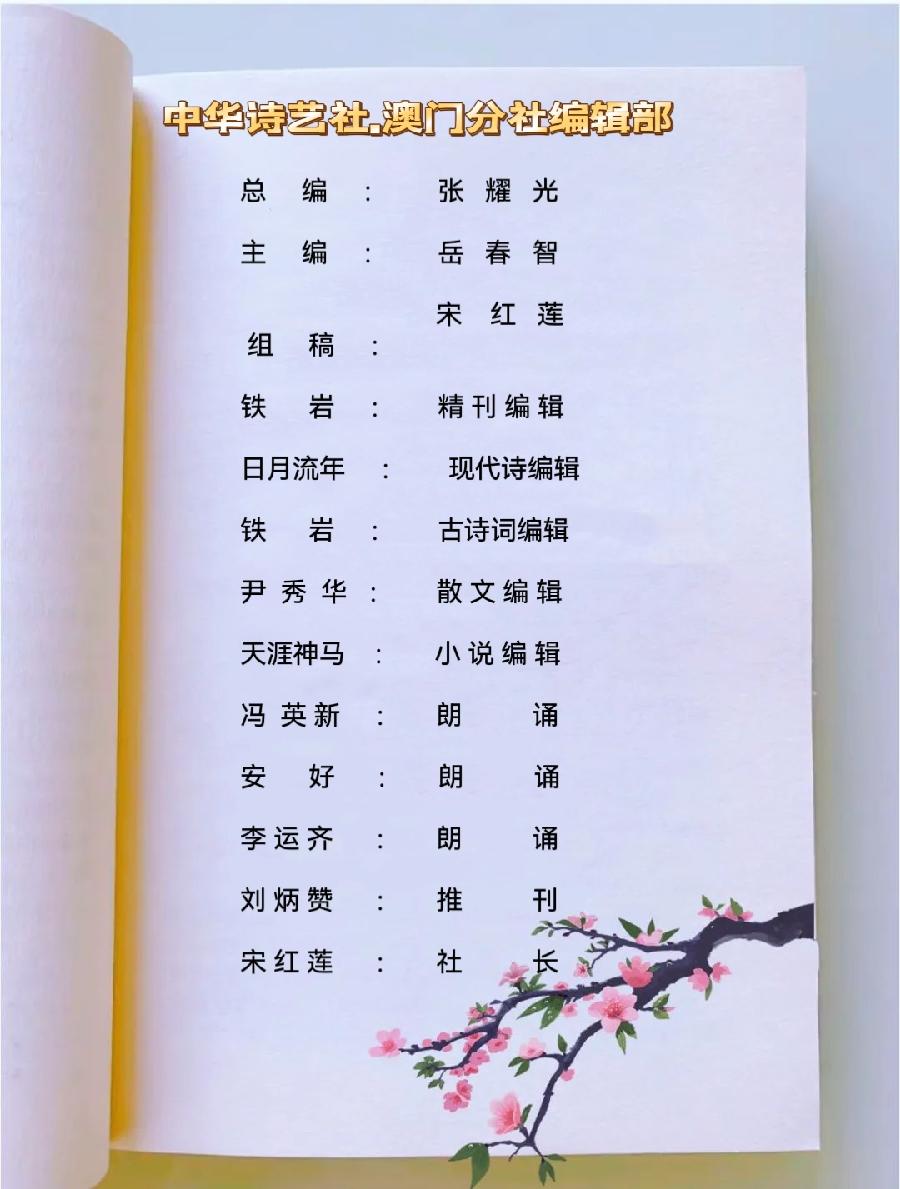 中华诗艺社.澳门分社编辑部
总 编 : 张 耀 光
主 编 : 岳 春 智
宋 红 莲
组 稿 :
铁 岩 : 精刊编辑
日月流年 : 现代诗编辑
铁 岩 : 古诗词编辑
尹 秀 华 : 散文编辑
天涯神马 : 小说编辑
冯 英新 : 朗 诵
安 好 : 朗 诵
李运齐 : 朗 诵
刘炳赞 : 推 刊
宋红莲 : 社 长